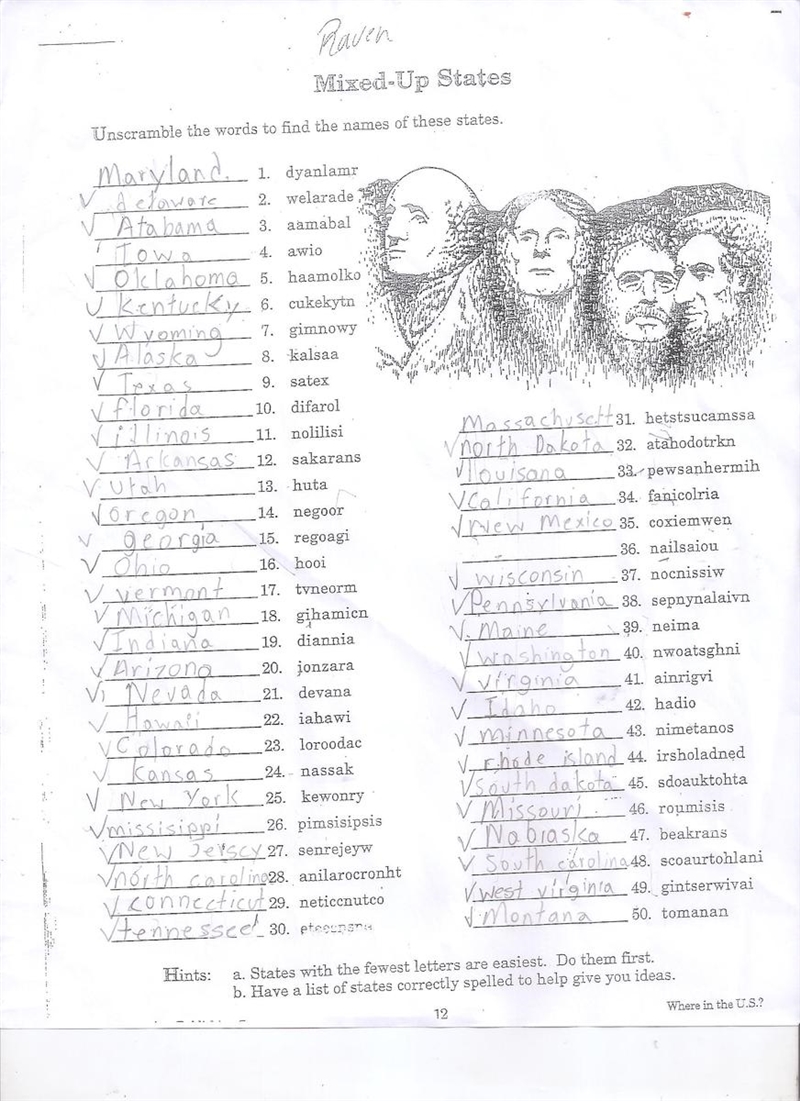 Raven
Mixed-Up States
Unscramble the words to find the names of these states.
Maryland. 1. dyanlamr
✓ delaware 2. welarade
✓ Alabama 3. aamabal
Iowa 4. awio
✓ Oklahoma 5. haamolko
✓ Kentucky 6. cukekytn
✓ Wyoming 7. gimnowy
✓ Alaska 8. kalsaa
✓ Texas 9. satex
✓ florida 10. difarol
✓ illinois 11. nolilisi
✓ Arkansas 12. sakarans
✓ Utah 13. huta
✓ Oregon 14. negoor
✓ georgia 15. regoagi
✓ Ohio 16. hooi
✓ vermont 17. tvneorm
✓ Michigan 18. gihamicn
✓ Indiana 19. diannia
✓ Arizona 20. jonzara
✓ Nevada 21. devana
✓ Hawaii 22. iahawi
✓ Colorado 23. loroodac
✓ kansas 24. nassak
✓ New York 25. kewonry
✓ missisippi 26. pimsisipsis
✓ New Jersey 27. senrejeyw
✓ north carolina 28. anilarocronht
✓ connecticut 29. neticcnutco
✓ tennessee 30.
Massachusett 31. hetstsucamssa
✓ north Dakota 32. atahodotrkn
✓ louisana 33. pewsanhermih
✓ California 34. fanicolria
✓ New Mexico 35. coxiemwen
36. nailsaiou
✓ wisconsin 37. nocnissiw
✓ Pennsylvania 38. sepnynalaivn
✓ Maine 39. neima
✓ washington 40. nwoatsghni
✓ virginia 41. ainrigvi
✓ Idaho 42. hadio
✓ minnesota 43. nimetanos
✓ rhode island 44. irsholadned
✓ South dakota 45. sdoauktohta
✓ Missouri 46. roumisis
✓ Nabraska 47. beakrans
✓ South carolina 48. scoaurtohlani
✓ west virginia 49. gintserwivai
✓ Montana 50. tomanan
Hints: a. States with the fewest letters are easiest. Do them first.
b. Have a list of states correctly spelled to help give you ideas.
Where in the U.S.?
12